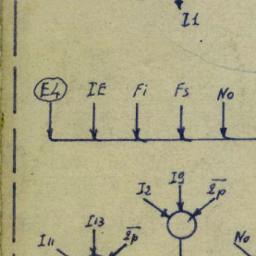 I1
E4 IE Fi Fs No
I2 I9 2p
I11 I13 2p No